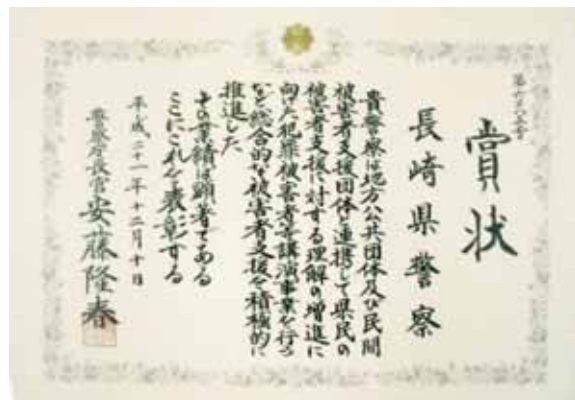 賞状
長崎県警察
貴警察は地方公共団体及び民間
被害者支援団体と連携して県民の
被害者支援に対する理解の増進に
向けた犯罪被害者等講演事業を行う
など総合的な被害者支援を積極的に
推進した
その業績は顕著である
ここにこれを表彰する
平成二十一年十二月十日
警察庁長官 安藤隆春